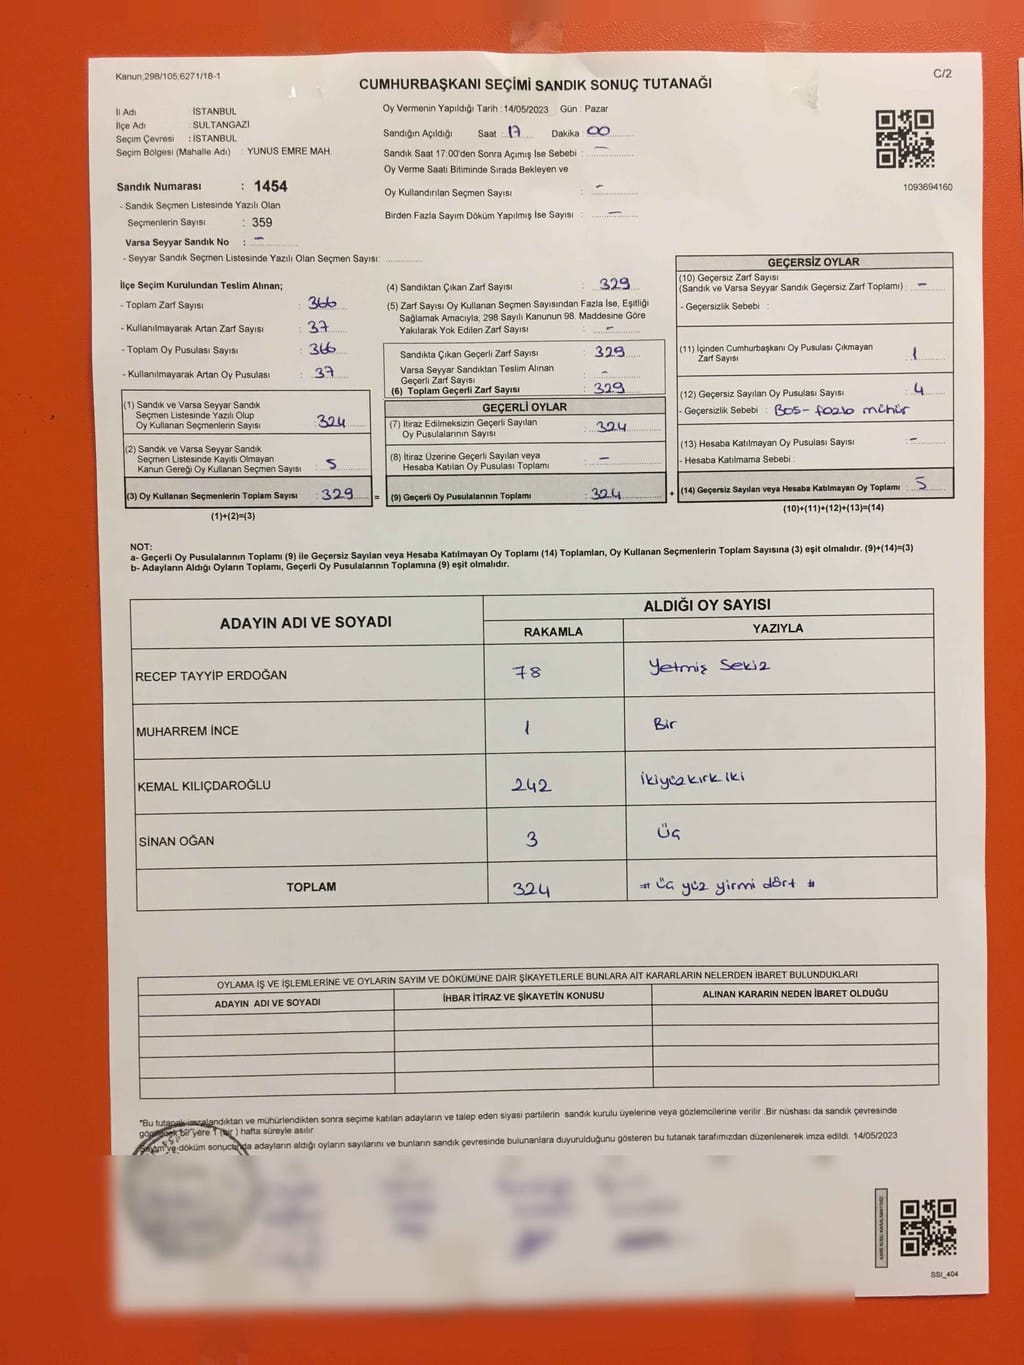 Kanun:298/105;6271/18-1
C/2
CUMHURBAŞKANI SEÇİMİ SANDIK SONUÇ TUTANAĞI
İl Adı : İSTANBUL
İlçe Adı : SULTANGAZİ
Seçim Çevresi : İSTANBUL
Seçim Bölgesi (Mahalle Adı) : YUNUS EMRE MAH.
Sandık Numarası : 1454
- Sandık Seçmen Listesinde Yazılı Olan
Seçmenlerin Sayısı : 359
Varsa Seyyar Sandık No : -
- Seyyar Sandık Seçmen Listesinde Yazılı Olan Seçmen Sayısı:
Oy Vermenin Yapıldığı Tarih : 14/05/2023 Gün : Pazar
Sandığın Açıldığı Saat : 17 Dakika : 00
Sandık Saat 17:00'den Sonra Açımış İse Sebebi : -
Oy Verme Saati Bitiminde Sırada Bekleyen ve
Oy Kullandırılan Seçmen Sayısı : -
Birden Fazla Sayım Döküm Yapılmış İse Sayısı : -
1093694160
İlçe Seçim Kurulundan Teslim Alınan;
- Toplam Zarf Sayısı : 366
- Kullanılmayarak Artan Zarf Sayısı : 37
- Toplam Oy Pusulası Sayısı : 366
- Kullanılmayarak Artan Oy Pusulası : 37
(1) Sandık ve Varsa Seyyar Sandık
Seçmen Listesinde Yazılı Olup
Oy Kullanan Seçmenlerin Sayısı : 324
(2) Sandık ve Varsa Seyyar Sandık
Seçmen Listesinde Kayıtlı Olmayan
Kanun Gereği Oy Kullanan Seçmen Sayısı : 5
(3) Oy Kullanan Seçmenlerin Toplam Sayısı : 329 =
(1)+(2)=(3)
(4) Sandıktan Çıkan Zarf Sayısı : 329
(5) Zarf Sayısı Oy Kullanan Seçmen Sayısından Fazla İse, Eşitliği
Sağlamak Amacıyla; 298 Sayılı Kanunun 98. Maddesine Göre
Yakılarak Yok Edilen Zarf Sayısı : -
Sandıkta Çıkan Geçerli Zarf Sayısı : 329
Varsa Seyyar Sandıktan Teslim Alınan
Geçerli Zarf Sayısı : -
(6) Toplam Geçerli Zarf Sayısı : 329
GEÇERLİ OYLAR
(7) İtiraz Edilmeksizin Geçerli Sayılan
Oy Pusulalarının Sayısı : 324
(8) İtiraz Üzerine Geçerli Sayılan veya
Hesaba Katılan Oy Pusulası Toplamı : -
(9) Geçerli Oy Pusulalarının Toplamı : 324 +
GEÇERSİZ OYLAR
(10) Geçersiz Zarf Sayısı
(Sandık ve Varsa Seyyar Sandık Geçersiz Zarf Toplamı) : -
- Geçersizlik Sebebi :
(11) İçinden Cumhurbaşkanı Oy Pusulası Çıkmayan
Zarf Sayısı : 1
(12) Geçersiz Sayılan Oy Pusulası Sayısı : 4
- Geçersizlik Sebebi : Bos- fazla mühür
(13) Hesaba Katılmayan Oy Pusulası Sayısı : -
- Hesaba Katılmama Sebebi :
(14) Geçersiz Sayılan veya Hesaba Katılmayan Oy Toplamı : 5
(10)+(11)+(12)+(13)=(14)
NOT:
a- Geçerli Oy Pusulalarının Toplamı (9) ile Geçersiz Sayılan veya Hesaba Katılmayan Oy Toplamı (14) Toplamları, Oy Kullanan Seçmenlerin Toplam Sayısına (3) eşit olmalıdır. (9)+(14)=(3)
b- Adayların Aldığı Oyların Toplamı, Geçerli Oy Pusulalarının Toplamına (9) eşit olmalıdır.
ADAYIN ADI VE SOYADI
ALDIĞI OY SAYISI
RAKAMLA YAZIYLA
RECEP TAYYİP ERDOĞAN 78 Yetmiş Sekiz
MUHARREM İNCE 1 Bir
KEMAL KILIÇDAROĞLU 242 İkiyüzkırk İki
SİNAN OĞAN 3 Üç
TOPLAM 324 # Üç yüz yirmi dört #
OYLAMA İŞ VE İŞLEMLERİNE VE OYLARIN SAYIM VE DÖKÜMÜNE DAİR ŞİKAYETLERLE BUNLARA AİT KARARLARIN NELERDEN İBARET BULUNDUKLARI
ADAYIN ADI VE SOYADI İHBAR İTİRAZ VE ŞİKAYETİN KONUSU ALINAN KARARIN NEDEN İBARET OLDUĞU
"Bu tutanak imzalandıktan ve mühürlendikten sonra seçime katılan adayların ve talep eden siyasi partilerin sandık kurulu üyelerine veya gözlemcilerine verilir .Bir nüshası da sandık çevresinde
görülecek bir yere 1 (bir ) hafta süreyle asılır
Sayım ve döküm sonucunda adayların aldığı oyların sayılarını ve bunların sandık çevresinde bulunanlara duyurulduğunu gösteren bu tutanak tarafımızdan düzenlenerek imza edildi. 14/05/2023
SSI_404